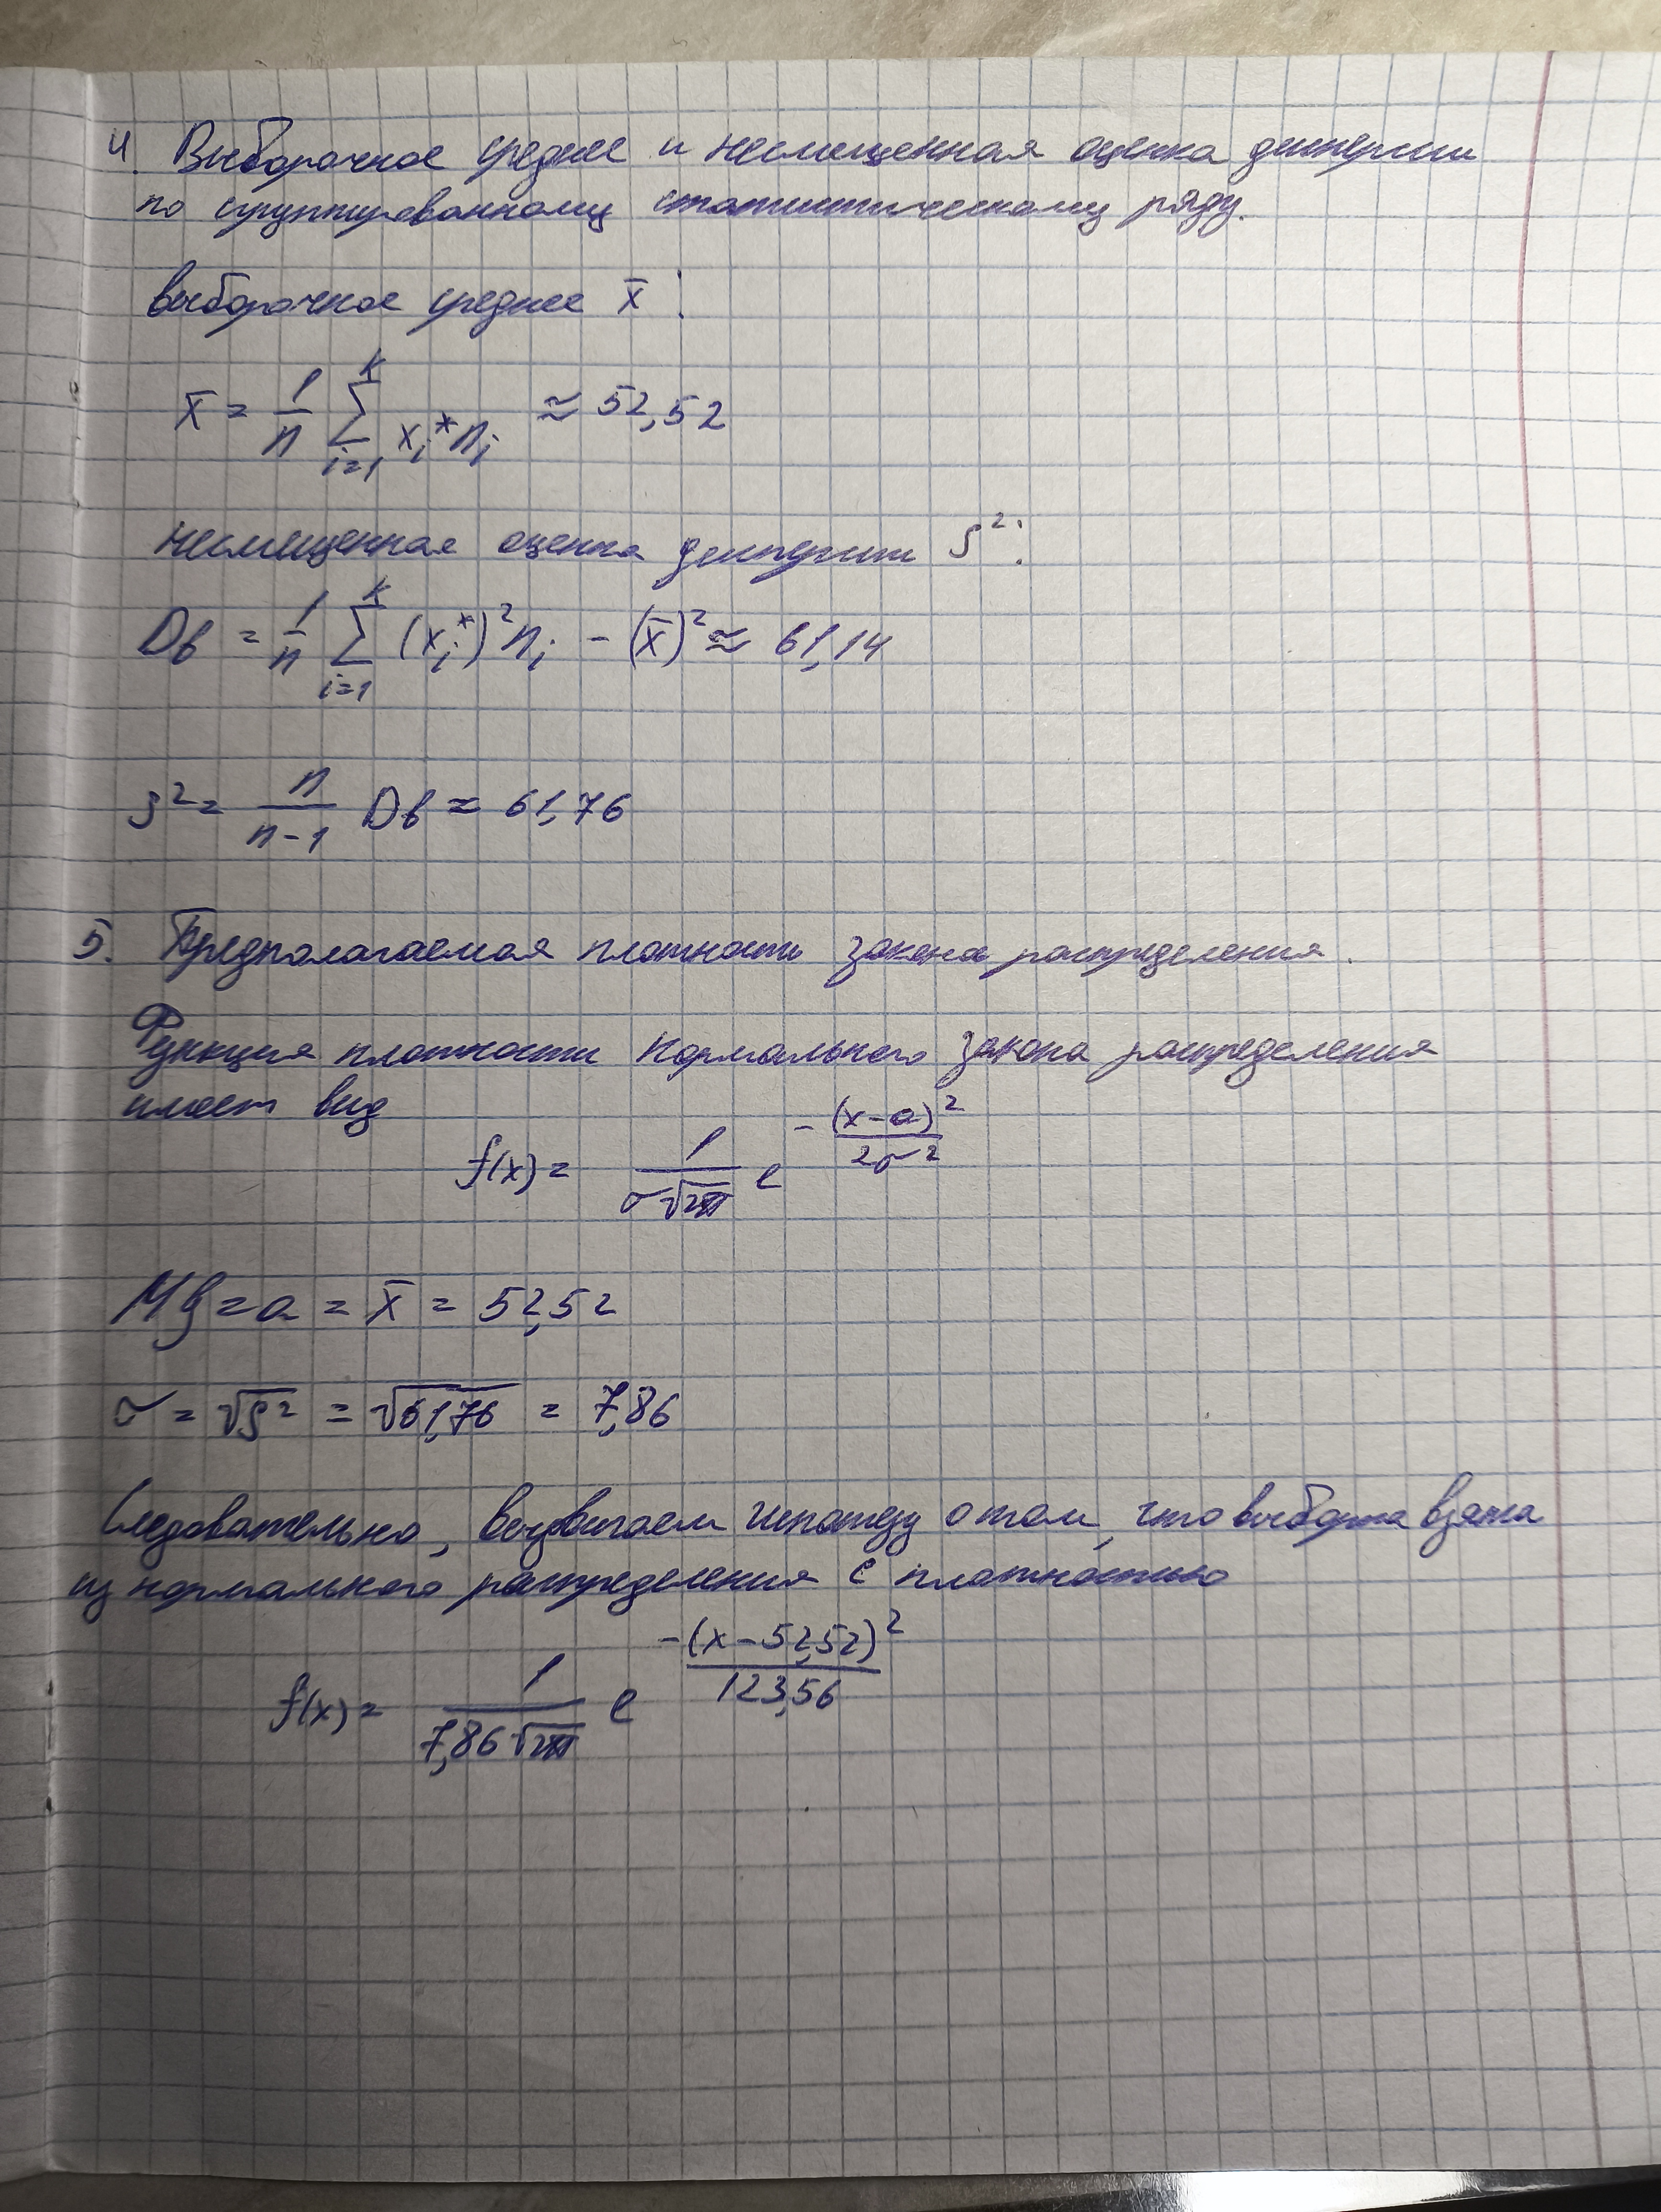 4. Выборочное среднее и несмещенная оценка дисперсии
по сгруппированному статистическому ряду.
выборочное среднее x̄:
x̄ = 1/n ∑_{i=1}^{k} x_i* n_i ≈ 52,52
несмещенная оценка дисперсии s²:
Dв = 1/n ∑_{i=1}^{k} (x_i*)² n_i - (x̄)² ≈ 61,14
s² = n/(n-1) Dв ≈ 61,76
5. Предполагаемая плотность закона распределения.
Функция плотности нормального закона распределения
имеет вид
f(x) = 1/(σ√2π) e^{-(x-a)²/2σ²}
Mξ = a = x̄ = 52,52
σ = √s² = √61,76 = 7,86
Следовательно, выдвигаем гипотезу о том, что выборка взята
из нормального распределения с плотностью
f(x) = 1/(7,86√2π) e^{-(x-52,52)²/123,56}